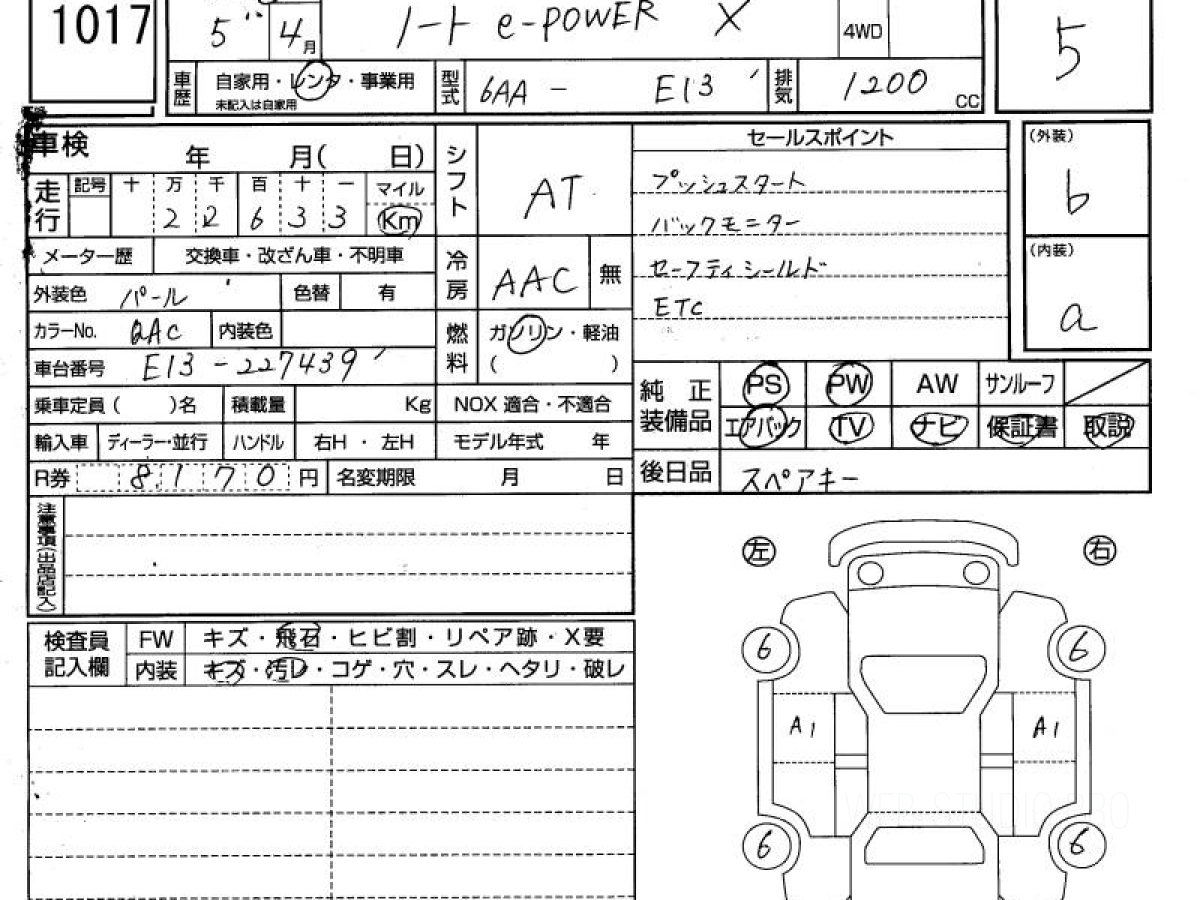 1017
5 4月 ノート e-POWER X 4WD 5
車歴 自家用・レンタ・事業用 型式 6AA - E13 排気 1200 CC
未記入は自家用
車検 年 月( 日) シフト AT セールスポイント (外装) b
走行 記号 十 万 千 百 十 一 マイル プッシュスタート
2 2 6 3 3 Km バックモニター
メーター歴 交換車・改ざん車・不明車 冷房 AAC 無 セーフティシールド (内装) a
外装色 パール 色替 有 ETC
カラーNo. QAC 内装色 燃料 ガソリン・軽油
車台番号 E13-227439 ( )
純正装備品 PS PW AW サンルーフ
乗車定員( )名 積載量 Kg NOX 適合・不適合 エアバック TV ナビ 保証書 取説
輸入車 ディーラー・並行 ハンドル 右H・左H モデル年式 年
R券 8,170円 名変期限 月 日 後日品 スペアキー
注意事項(出品店記入)
左 右
検査員記入欄 FW キズ・飛石・ヒビ割・リペア跡・X要
内装 キズ・汚レ・コゲ・穴・スレ・ヘタリ・破レ
6 6
A1 A1
6 6